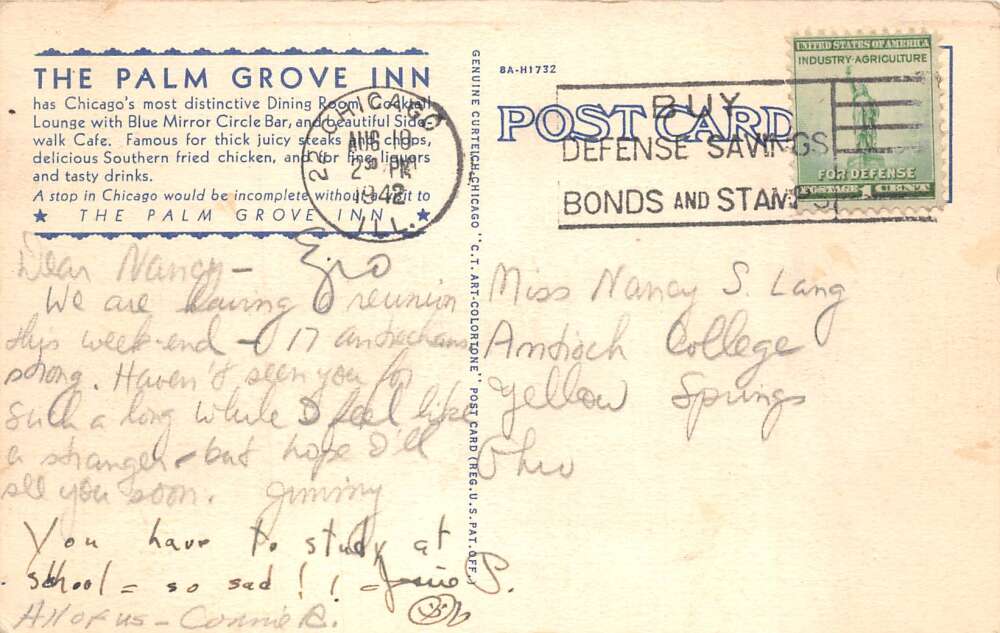 THE PALM GROVE INN
has Chicago's most distinctive Dining Room, Cocktail
Lounge with Blue Mirror Circle Bar, and beautiful Side-
walk Cafe. Famous for thick juicy steaks and chops,
delicious Southern fried chicken, and for fine liquors
and tasty drinks.
A stop in Chicago would be incomplete without a visit to
★ THE PALM GROVE INN ★
GENUINE CURTEICH-CHICAGO "C.T. ART-COLORTONE" POST CARD (REG. U.S. PAT. OFF.)
8A-H1732
POST CARD
CHICAGO 22
AUG 10
2 30 PM
1942
ILL.
BUY
DEFENSE SAVINGS
BONDS AND STAMPS
UNITED STATES OF AMERICA
INDUSTRY-AGRICULTURE
FOR DEFENSE
POSTAGE 1 CENT
Dear Nancy -
We are having a reunion
this week-end - 17 antiochians
strong. Haven't seen you for
such a long while I feel like
a stranger - but hope I'll
see you soon. Jimmy
You have to study at
school = so sad!! =
All of us - Connie R.
Miss Nancy S. Lang
Antioch College
Yellow Springs
Ohio